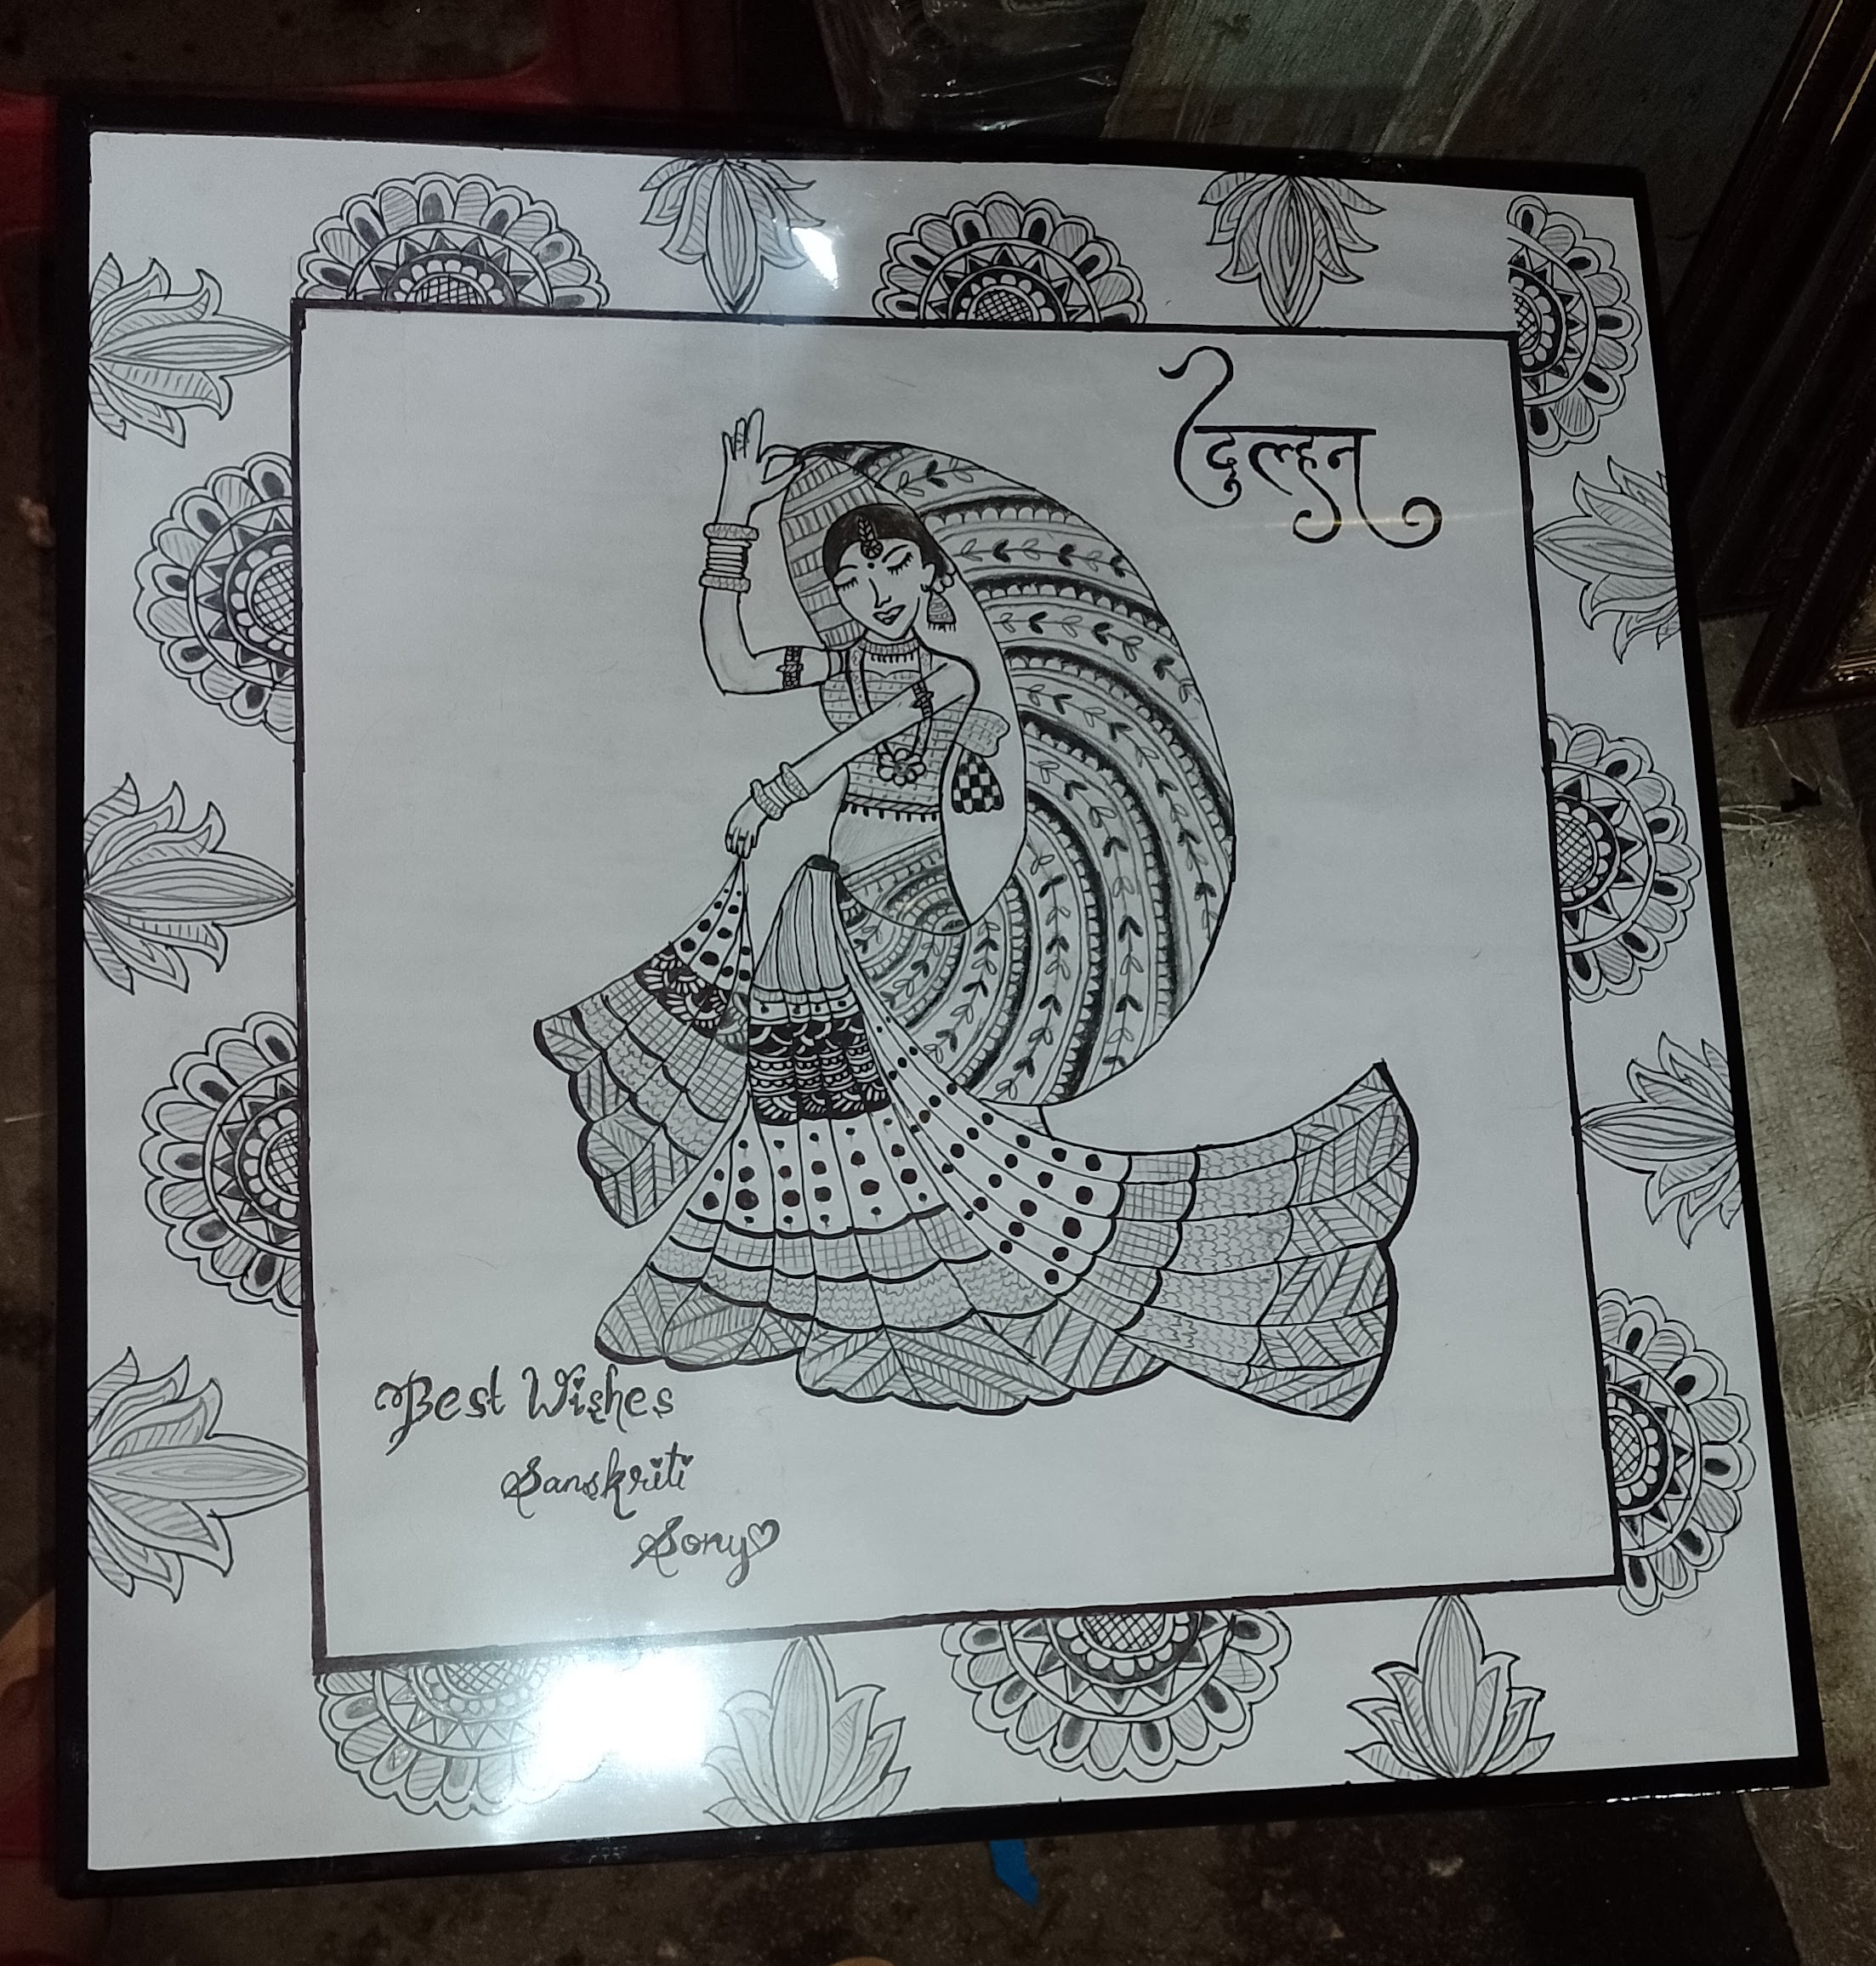 दुल्हन
Best Wishes
Sanskriti
Sony